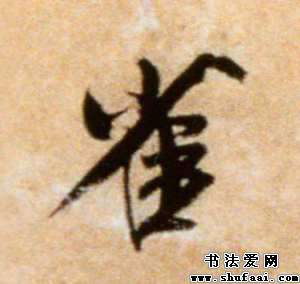 雀
书法爱网
www.shufaai.com